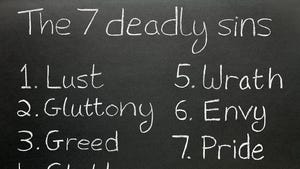 The 7 deadly sins
1. Lust
2. Gluttony
3. Greed
5. Wrath
6. Envy
7. Pride